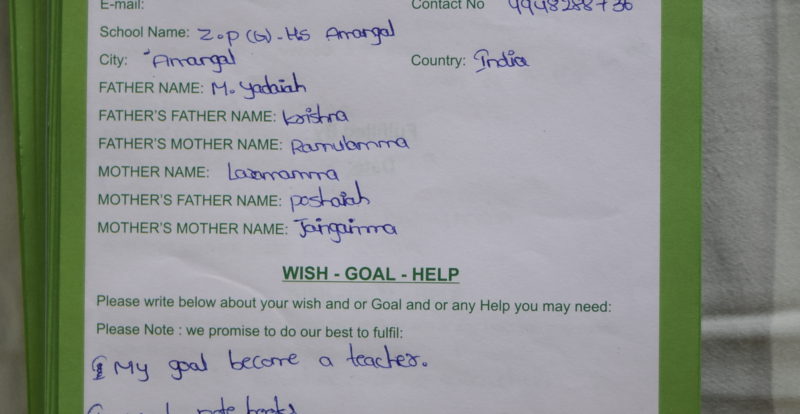 E-mail: Contact No 9948288736
School Name: Z.P (G)-HS Amangal
City: Amangal Country: India
FATHER NAME: M. Yadaiah
FATHER'S FATHER NAME: krishna
FATHER'S MOTHER NAME: Ramulamma
MOTHER NAME: Laxmamma
MOTHER'S FATHER NAME: poshaiah
MOTHER'S MOTHER NAME: Jangamma
WISH - GOAL - HELP
Please write below about your wish and or Goal and or any Help you may need:
Please Note : we promise to do our best to fulfil:
My goal become a teacher.
note books